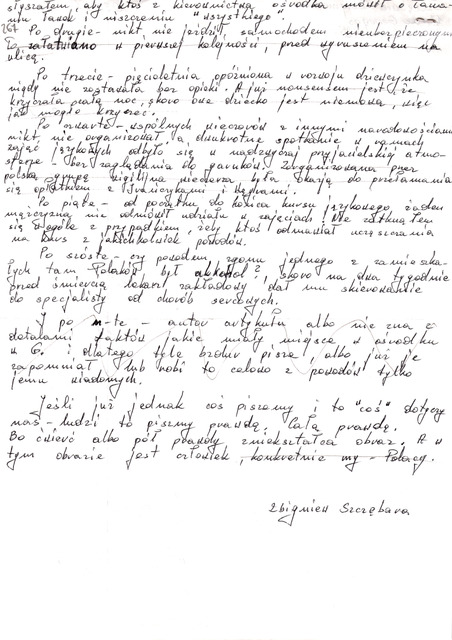 słyszałem, aby ktoś z kierownictwa ośrodka mówił o łama-
niu ławek i niszczeniu "wszystkiego".
267 Po drugie - nikt nie jeździł samochodem nieubezpieczonym
To załatwiano w pierwszej kolejności, przed wyruszeniem na
ulicę.
Po trzecie - pięcioletnia opóźniona w rozwoju dziewczynka
nigdy nie zostawała bez opieki. A już nonsensem jest, że
krzyczała całą noc, skoro owe dziecko jest niemową, więc
jak mogło krzyczeć.
Po czwarte - wspólnych wieczorów z innymi narodowościami
nikt nie organizował, a dwukrotne spotkanie w ramach
zajęć językowych odbyło się w nadzwyczaj przyjacielskiej atmo-
sferze - bez zaglądania do garnków. Zorganizowana przez
polską grupę wigilijna wieczerza była okazją do przełamania
się opłatkiem z Irańczykami i Węgrami.
Po piąte - od początku do końca kursu językowego żaden
mężczyzna nie odmówił udziału w zajęciach. Nie zetknąłem
się w ogóle z przypadkiem, żeby ktoś odmawiał uczęszczania
na kurs z jakichkolwiek powodów.
Po szóste - czy powodem zgonu jednego z zamieszka-
łych tam Polaków był alkohol?, skoro na dwa tygodnie
przed śmiercią lekarz zakładowy dał mu skierowanie
do specjalisty od chorób sercowych.
I po n-te - autor artykułu albo nie zna z
detalami faktów jakie miały miejsce w ośrodku
w G. i dlatego tyle bzdur pisze, albo już je
zapomniał lub robi to celowo z powodów tylko
jemu wiadomych.
Jeśli już jednak coś piszemy i to "coś" dotyczy
nas - ludzi to piszmy prawdę. Całą prawdę.
Bo ćwierć albo pół prawdy zniekształca obraz. A w
tym obrazie jest człowiek, konkretnie my - Polacy.
Zbigniew Szczębara